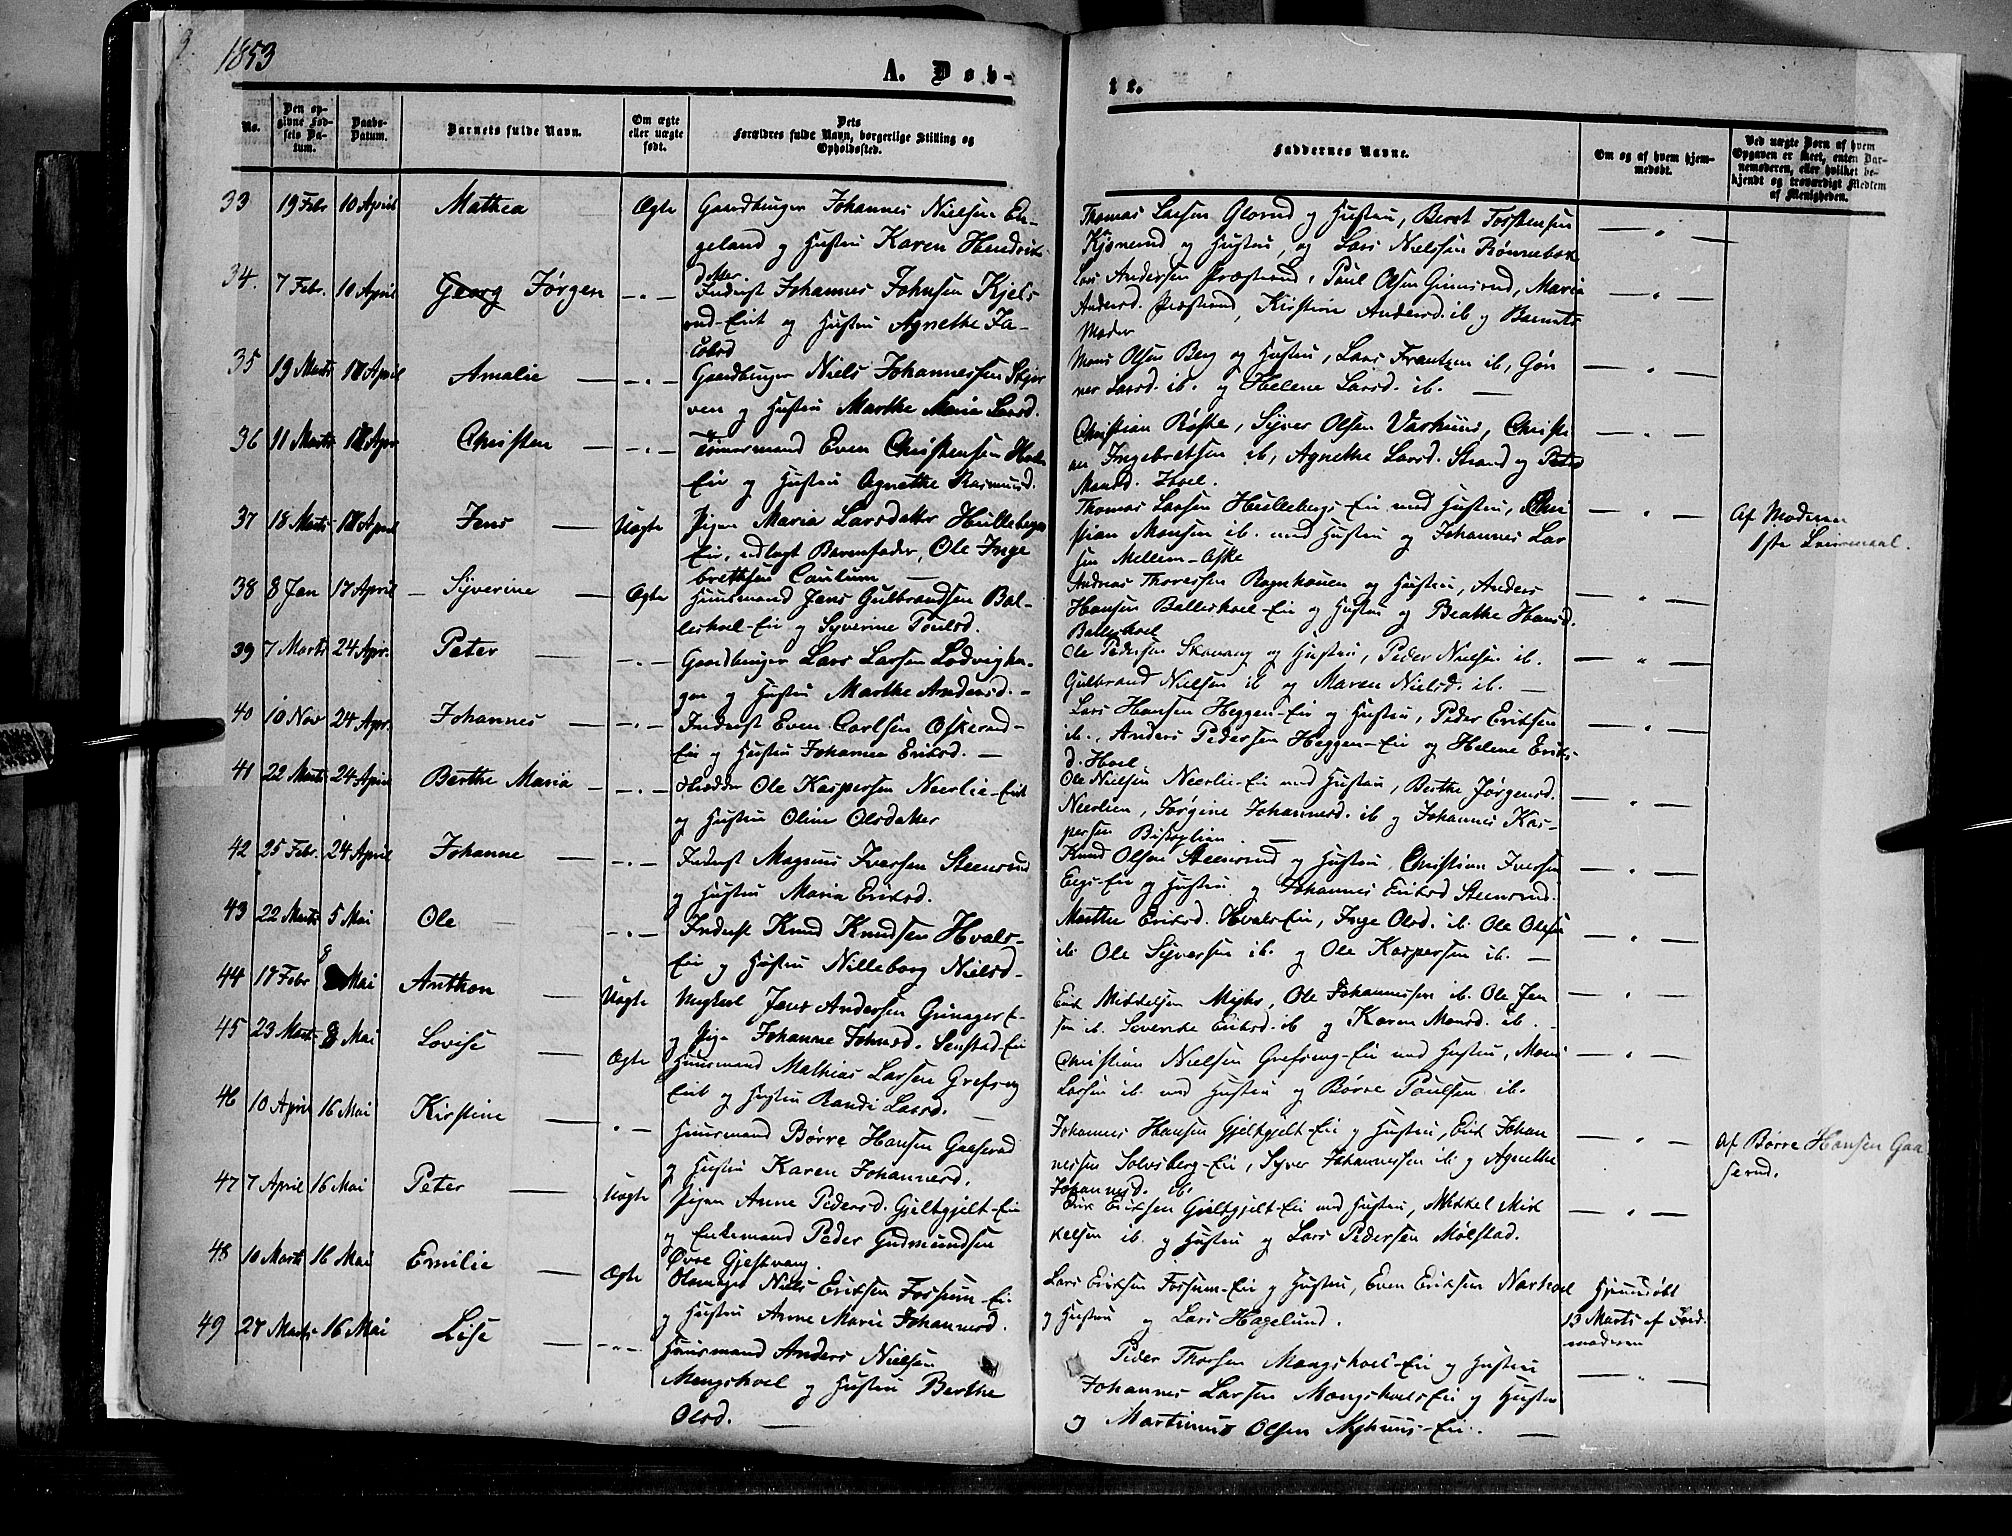 1853
A. Døb-
te.
No.
Den op-
givne Fød-
sels Da-
tum.
Daabs-
Datum.
Barnets fulde Navn.
Om ægte
eller uægte
født.
Dets
Forældres fulde Navn, borgerlige Stilling og
Opholdssted.
Faddernes Navne.
Om og af hvem hjem-
medøbt.
Ved uægte Børn af hvem
Opgaven er skeet, enten Bar-
nemoderen, eller hvilket be-
kjendt og troværdigt Medlem
af Menigheden.
33 19 Febr 10 April Mathea Ægte Gaardbruger Johannes Nielsen En-
geland og Hustru Karen Hendriks
datter.
Thomas Larsen Glorud og Hustru, Beret Torstensen
og Hustru, og Lars Nielsen Rønnebæk
34. 7 Febr. 10 April Georg Jørgen -"- Inderst Johannes Johnsen Kjels
rud-Eiet og Hustru Agnethe Ja-
cobsd
Lars Andersen Præsterud, Paul Olsen Ginnerud, Maria
Andersd. Præsterud, Kirstine Andersd. ib og Barnets
Moder
35 19 Marts 17 April Amalie — -"- Gaardbruger Niels Johannessen Skjer
ven og Hustru Marthe Maria Larsd.
Mons Olsen Berg og Hustru, Lars Frantzen ib, Gøn
ner Larsd. ib. og Helene Larsd. ib. —
36 11 Marts 17 Apr Christen — -"- Tømermand Even Christensen Hoels
Eie og Hustru Agnethe Rasmusd.
Christian Røste, Syver Olsen Varhuus, Christi
an Ingebretsen ib, Agnethe Larsd. Strand og
Monsd. Hoel.
37 18 Marts 17 April Jens — Uægte Pigen Maria Larsdatter Hullebergs
Eie, udlagt Barnefader, Ole Inge
brethsen
Thomas Larsen Hullebergs-Eie med Hustru, Chri
stian Monsen ib. med Hustru og Johannes Lar
sen Mellem-Aske
Af Moderen
1ste Leiermaal.
38 8 Jan 17 April Syverine — Ægte Huusmand Jens Gulbrandsen Bal-
leshoel-Eie og Syverine Poulsd.
Andreas Thoresen Ragnhouen og Hustru, Anders
Hansen Balleshoel-Eie og Hustru og Beathe Hansd.
Balleshoel
39 7 Marts 24 Apr. Peter — -"- Gaardbruger Lars Larsen Lodvigha-
gen og Hustru Marthe Andersd. —
Ole Pedersen Skouang og Hustru, Peder Nielsen ib.
Gulbrand Nielsen ib og Maren Nielsd. ib. —
40 10 Nov 24 Apr. Johannes — -"- Inderst Even Carlsen Oskerud-
Eie og Hustru Johanna Eriksd. —
Lars Hansen Heggen-Eie og Hustru, Peder Eriksen
ib., Anders Pedersen Heggen-Eie og Helene Eriks
d. Hoel
41 22 Marts 24 April Berthe Maria — -"- Ole Kaspersen Neerlie-Eiet
og Hustru Oline Olsdatter
Ole Nielsen Neerlie-Eie med Hustru, Berthe Jørgensd.
Neerlien, Jørgine Johannesd. ib og Johannes Kas-
persen
42 25 Febr. 24 April Johanne — -"- Inderst Magnus Iversen Steensrud
og Hustru Maria Eriksd.
Knud Olsen Steensrud og Hustru, Christian Iversen
Eegs-Eie og Hustru, og Johannes Eriksd Steensrud.
43 22 Marts 5 Mai Ole — -"- Inderst Knud Knudsen Hvals-
Eie og Hustru Nilleborg Nielsd-
Marthe Eriksd. Hvals-Eie, Inge Olsd. ib. Ole Olsen
ib. Ole Syversen ib. og Ole Kaspersen ib. —
44 17 Febr 8 Mai Anthon — Uægte Ungkarl Jens Andersen
og Pige Johanne Johnsd. Senstad-Eie
Erik Mikkelsen Myhr, Ole Johannessen ib. Ole Jen
sen ib. Eriksd. ib og Karen Monsd. ib. —
45 23 Marts 8 Mai Lovise — Ægte Huusmand Mathias Larsen Grefsrog
Eiet og Hustru Randi Larsd. —
Christian Nielsen Grefseng-Eie med Hustru, Mons
Larsen ib. med Hustru og Børre Poulsen ib.
46 10 April 16 Mai Kirstine — -"- Huusmand Børre Hansen Gaaserud
og Hustru Karen Johannesd.
Johannes Hansen Gjeltgjelt-Eie og Hustru, Erik Johan
nessen Solvsberg-Eie, Syver Johannessen ib og Agnethe
Johannesd. ib.
Af Børre Hansen Gaa
serud.
47 7 April 16 Mai Peter — Uægte Pigen Anne Pedersd. Gjeltgjelt-Eie
og Enkemand Peder Gudmundsen
Øvre Gjestvang.
Erik Eriksen Gjeltgjelt-Eie med Hustru, Mikkel Mik
kelsen ib. og Hustru og Lars Pedersen Mølstad.
48 10 Marts 16 Mai Emilie — Ægte Niels Eriksen Fossum-Eie
og Hustru Anne Marie Johannesd.
Lars Eriksen Fossum-Eie og Hustru, Even Eriksen Narhoel
og Hustru og Lars Hagelund.
Hjemdøbt
13 Marts af Jord
moderen
49 27 Marts 16 Mai Lise — -"- Huusmand Anders Nielsen
Mengshoel og Hustru Berthe
Olsd. —
Peder Thorsen Mengshoel-Eie og Hustru
Johannes Larsen Mengshoels Eie og Hustru
og Martinus Olsen Nyhuus-Eie. —